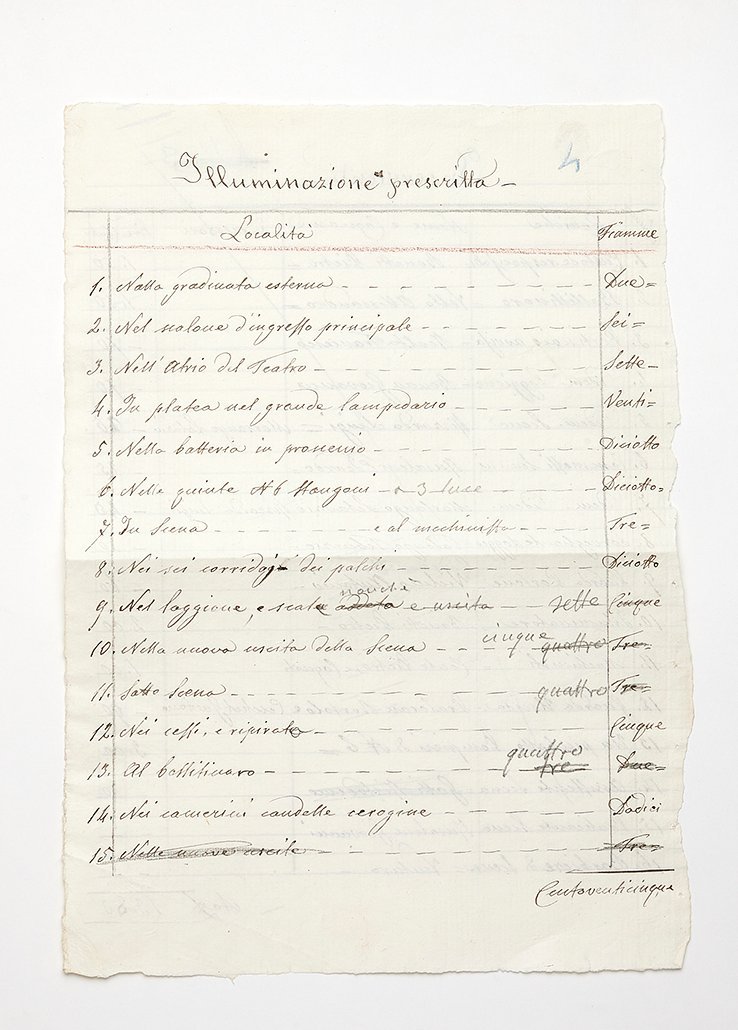 4
Illuminazione prescritta
Località Fiamme
1. Nalla gradinata esterna Due=
2. Nel salone d'ingresso principale Sei=
3. Nell'Atrio del Teatro Sette-
4. In platea nel grande lampadario Venti=
5. Nella batteria in proscenio Diciotto
6. Nelle quinte N6 Mangani a 3 luce Diciotto-
7. In Scena e al mechinista Tre=
8. Nei sei corridoj dei palchi Diciotto
nonché
9. Nel loggione, e scale addeta e uscita sette Cinque
10. Nella nuova uscita della Scena cinque quattro Tre-
11. Sotto Scena quattro Tre-
12. Nei cessi, e ripirato Cinque
13. Al bollitinaro quattro tre Due-
14. Nei camerini candelle cerogine Dodici
15. Nelle nuove uscite Tre-
Centoventicinque